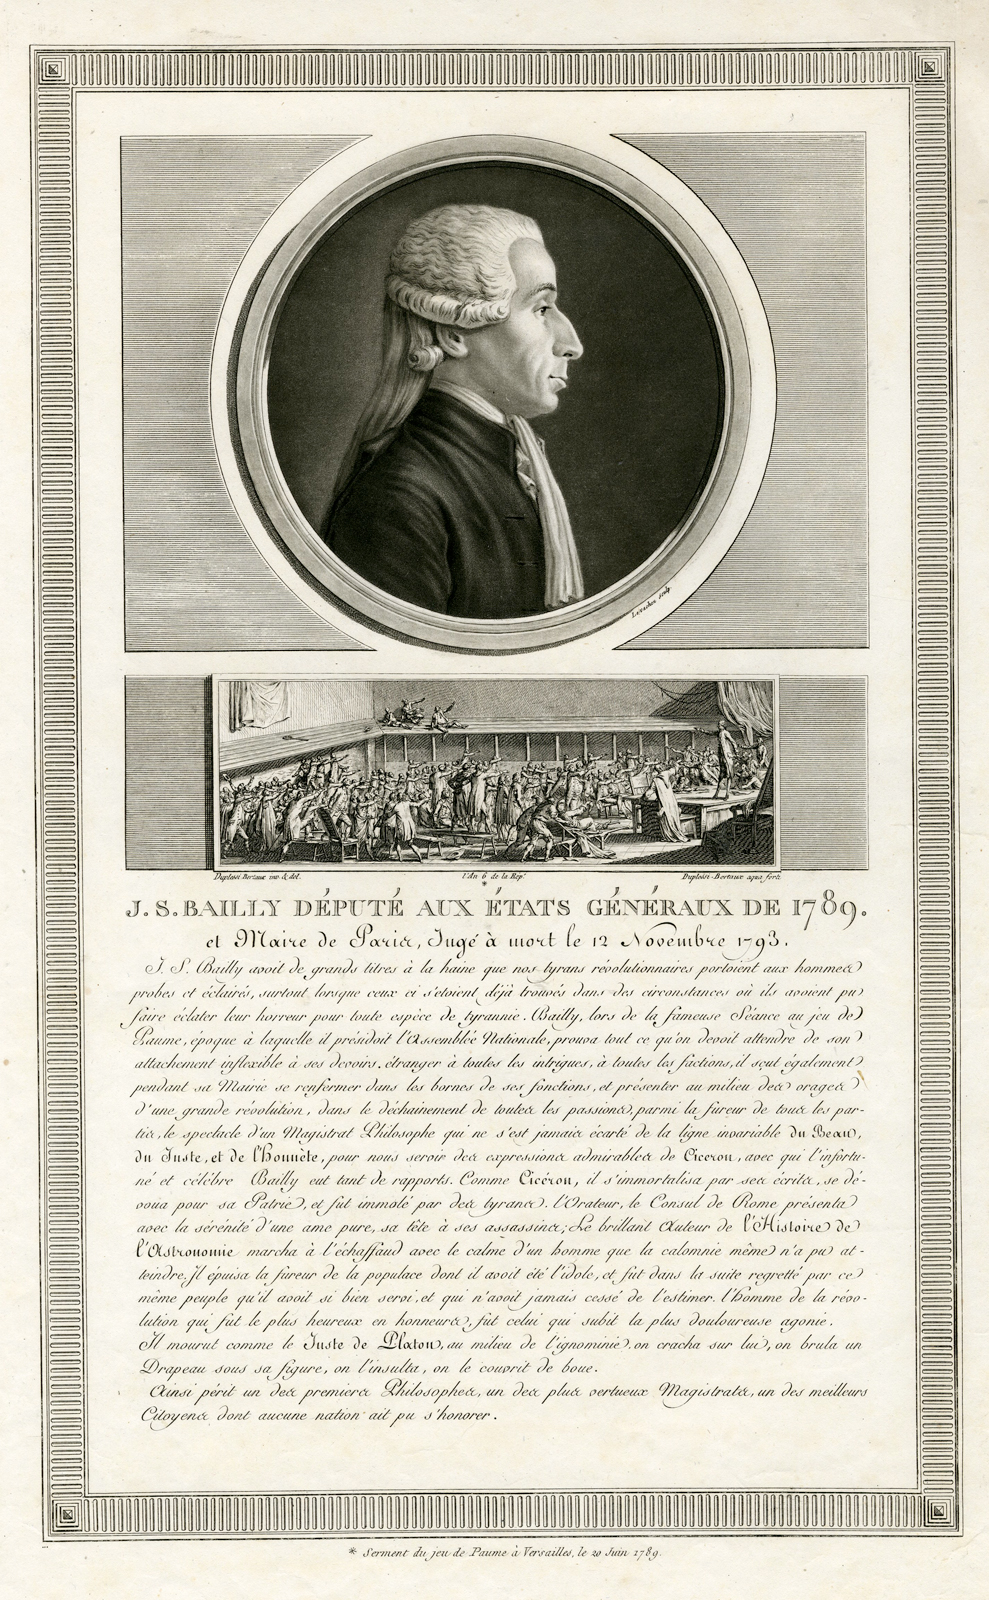 Levachez sculp
Duplessi Bertaux inv. & del.
l'An 6 de la Rép.
Duplessi-Bertaux aqua forti
*
J. S. BAILLY DÉPUTÉ AUX ÉTATS GÉNÉRAUX DE 1789.
et Maire de Paris, Jugé à mort le 12 Novembre 1793.
J. S. Bailly avoit de grands titres à la haine que nos tyrans révolutionnaires portoient aux hommes
probes et éclairés, surtout lorsque ceux ci s'etoient déjà trouvés dans des circonstances où ils avoient pu
faire éclater leur horreur pour toute espèce de tyrannie. Bailly, lors de la fameuse Séance au jeu de
Paume, époque à laquelle il présidoit l'Assemblée Nationale, prouva tout ce qu'on devoit attendre de son
attachement inflexible à ses devoirs. étranger à toutes les intrigues, à toutes les factions, il sçut également
pendant sa Mairie se renfermer dans les bornes de ses fonctions, et présenter au milieu des orages
d'une grande révolution, dans le déchainement de toutes les passions, parmi la fureur de tous les par-
tis, le spectacle d'un Magistrat Philosophe qui ne s'est jamais écarté de la ligne invariable du Beau,
du Juste, et de l'Honnête, pour nous servir des expressions admirables de Ciceron, avec qui l'infortu-
né et célébre Bailly eut tant de rapports. Comme Cicéron, il s'immortalisa par ses écrits, se dé-
voua pour sa Patrie, et fut immolé par des tyrans. l'Orateur, le Consul de Rome présenta
avec la sérénité d'une ame pure, sa tête à ses assassins; Le brillant Auteur de l'Histoire de
l'Astronomie marcha à l'échaffaud avec le calme d'un homme que la calomnie même n'a pu at-
teindre. Il épuisa la fureur de la populace dont il avoit été l'idole, et fut dans la suite regretté par ce
même peuple qu'il avoit si bien servi, et qui n'avoit jamais cessé de l'estimer. l'homme de la révo-
lution qui fut le plus heureux en honneurs, fut celui qui subit la plus douloureuse agonie.
Il mourut comme le Juste de Platon, au milieu de l'ignominie. on cracha sur lui, on brula un
Drapeau sous sa figure, on l'insulta, on le couvrit de boue.
Ainsi périt un des premiers Philosophes, un des plus vertueux Magistrats, un des meilleurs
Citoyens dont aucune nation ait pu s'honorer.
* Serment du jeu de Paume à Versailles, le 20 Juin 1789.